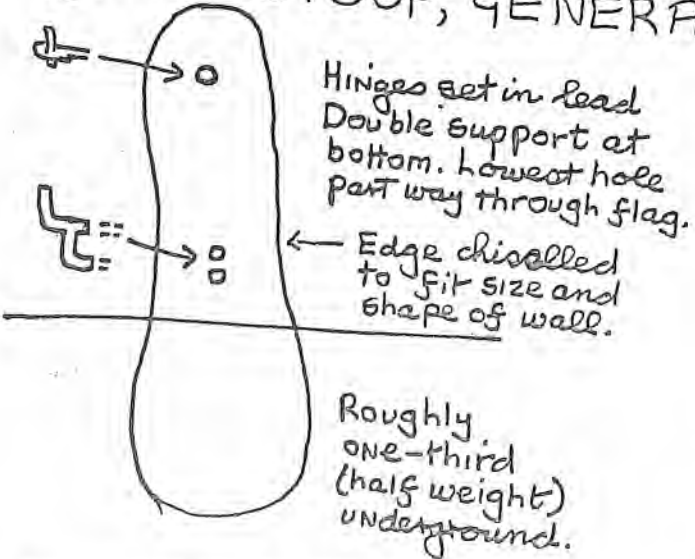 Hinges set in lead
Double support at
bottom. Lowest hole
part way through flag.
Edge chiselled
to fit size and
shape of wall.
Roughly
one-third
(half weight)
underground.